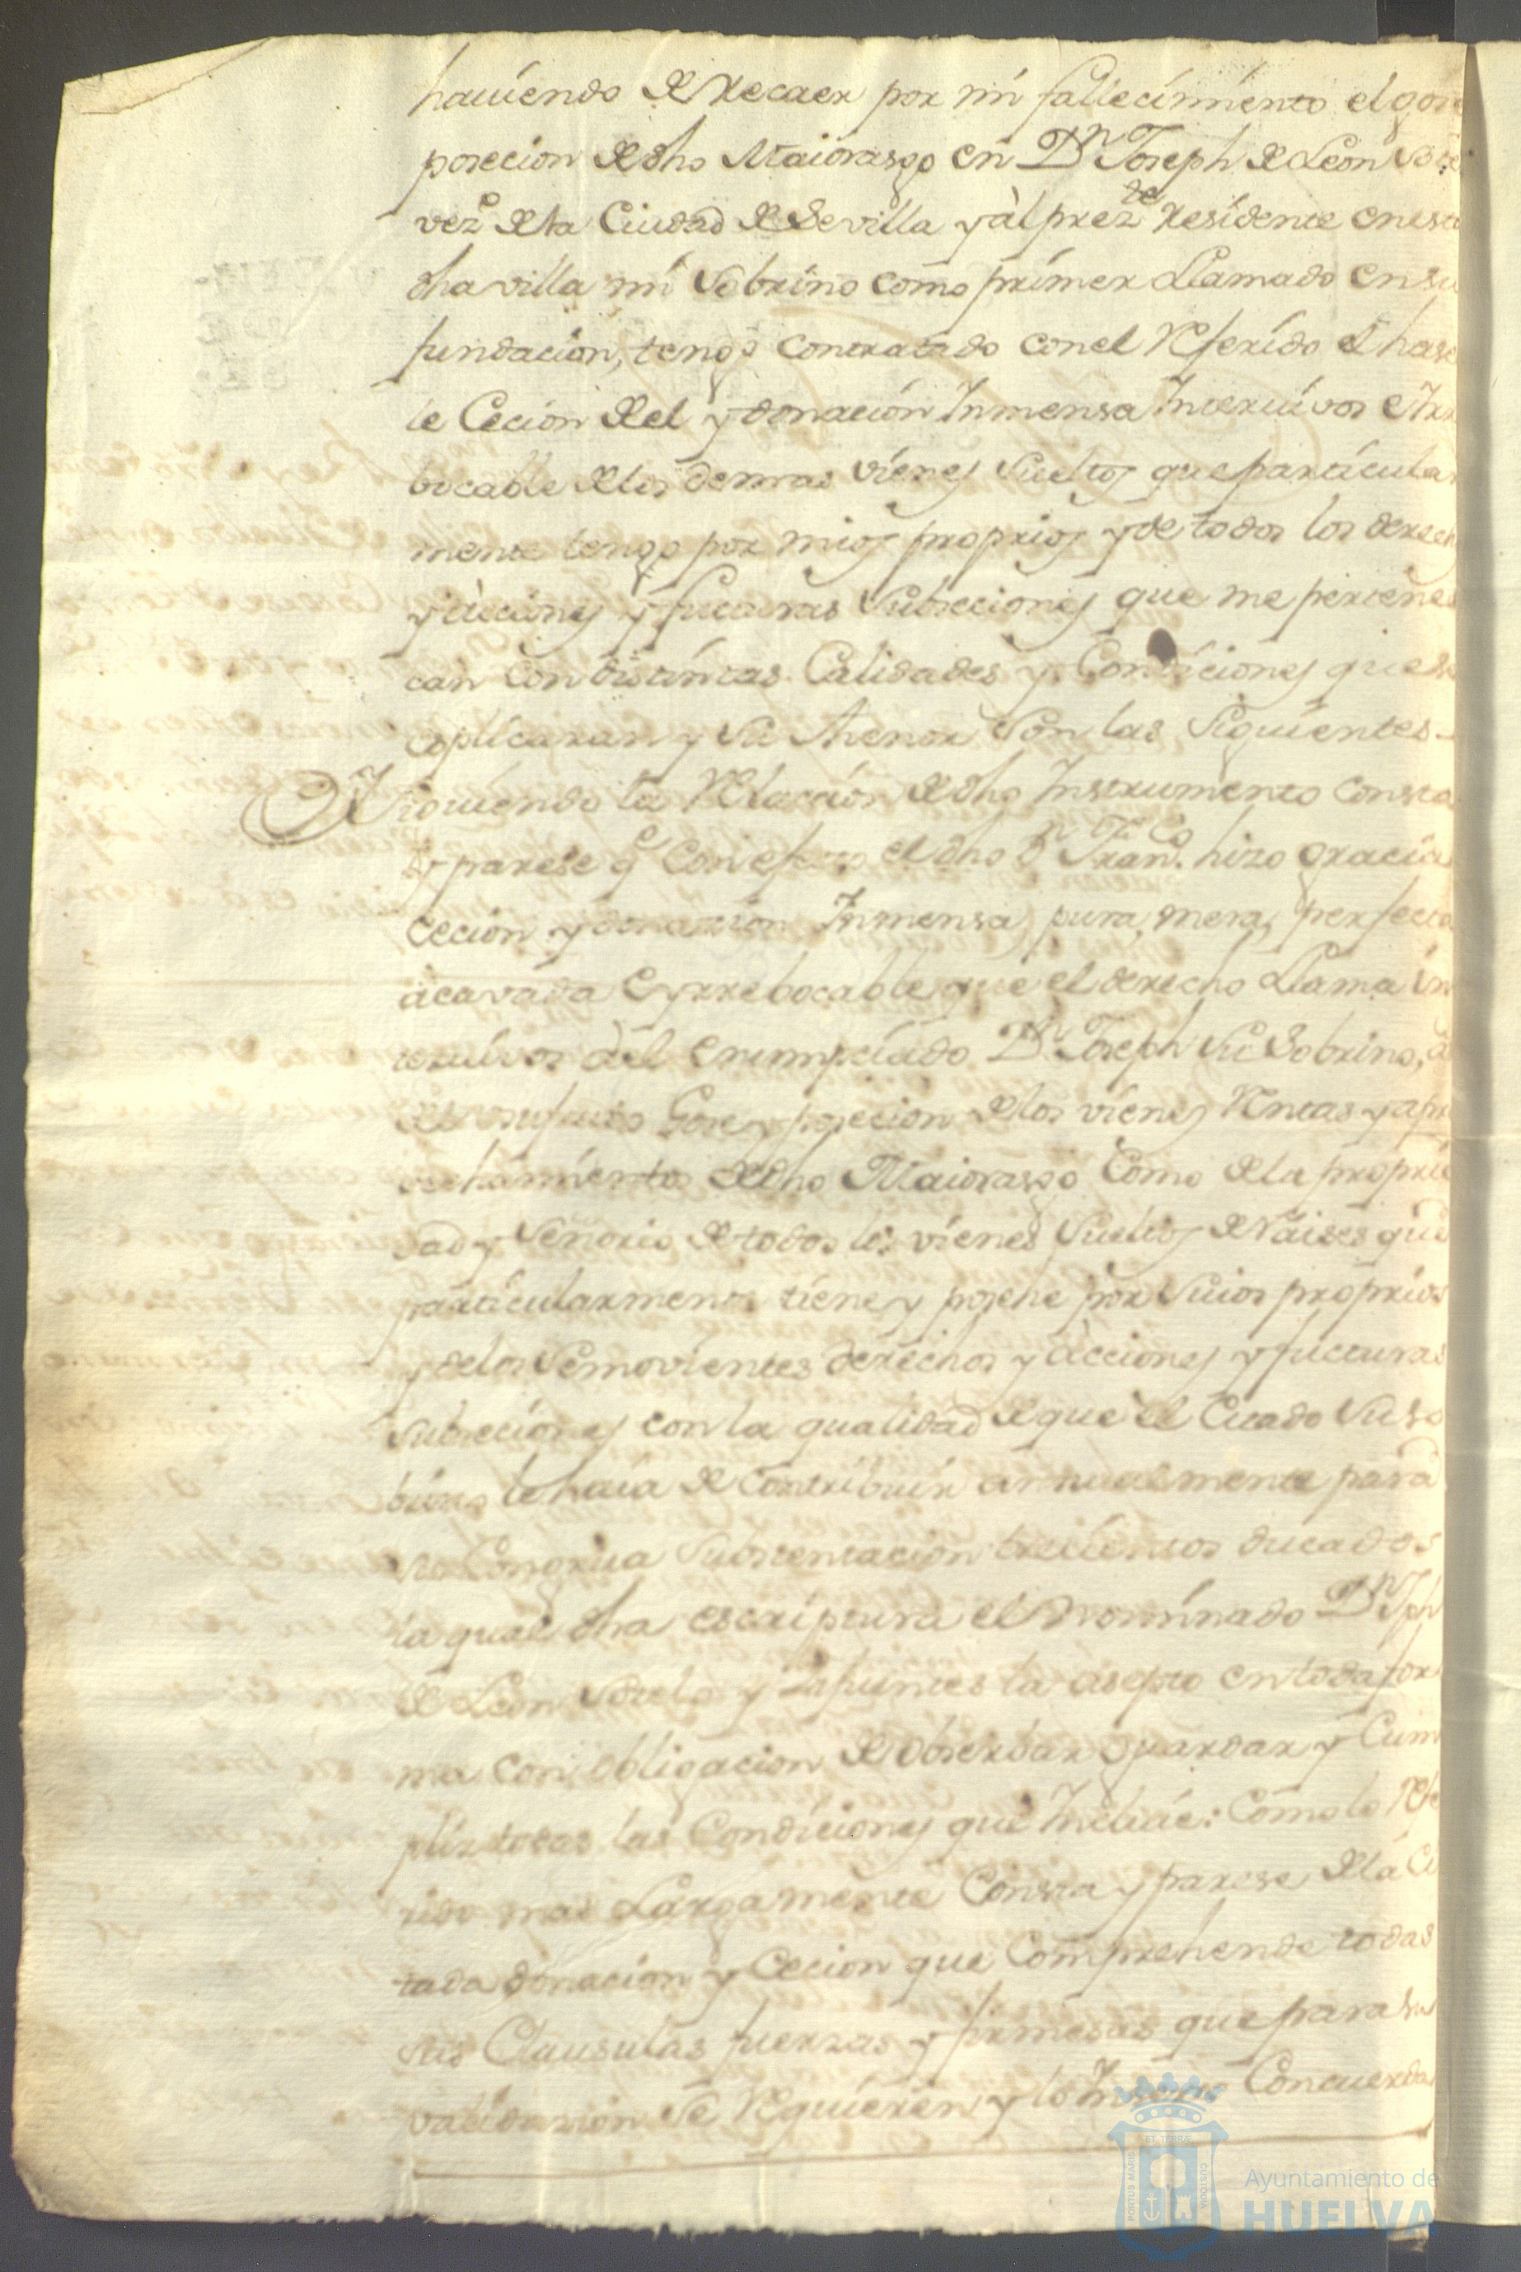 haviendo de Recaer por mi fallecimiento el gose
posecion de dho Maiorasgo en Dn Joseph de Leon
vezo de la Ciudad de Sevilla y al preztte Residente en esta
dha villa mi Sobrino como primer Llamado en su
fundacion, tengo contratado con el Referido el haser
le Cecion de el y donacion Inmensa Intervivos e Yrre
bocable de los demas vienes Sueltos que particular
mente tengo por mios proprios y de todos los derech
y acciones y futuras Subseciones que me pertenes
can con distintas Calidades y Condiciones que se
esplicaran y Su thenor Son las Siguientes
Y Siguiendo la Relacion de dho Instrumento consta
y parese qe con efecto el dho Dn Franco hizo gracia
cecion y donazion Inmensa, pura, mera, perfecta
acavada e yrrebocable que el derecho Llama in
tervivos a el enunpciado Dn Joseph Su Sobrino, a
el usufruto Gose y posecion de los vienes Rentas y apro
vechamientos de dho Maiorasgo Como de la proprie
dad y Señorio de todos los vienes Sueltos de Raises que
particularmente tiene y posehe por Suios proprios
y de los Semovientes derechos y acciones y futturas
Subseciones con la qualidad de que el Citado Su so
brino le haia de contribuir annualmente para
su Congrua Substentacion trecientos ducados
la qual dha escriptura el nominado Dn Jph
de Leon Sotelo y Zifuentes la asepto en toda for
ma con obligacion de obserbar guardar y Cum
plir todas las Condiciones que Incluie: Como lo Refe
rido mas Largamente Consta y parese de la Ci
tada donacion y Cecion que Comprehende todas
sus Clausulas fuerzas y firmesas que para su
validazion Se Requieren y lo Inserto Concuerda
ET TERRÆ
PORTUS MARIS
CUSTODIA
Ayuntamiento de
HUELVA